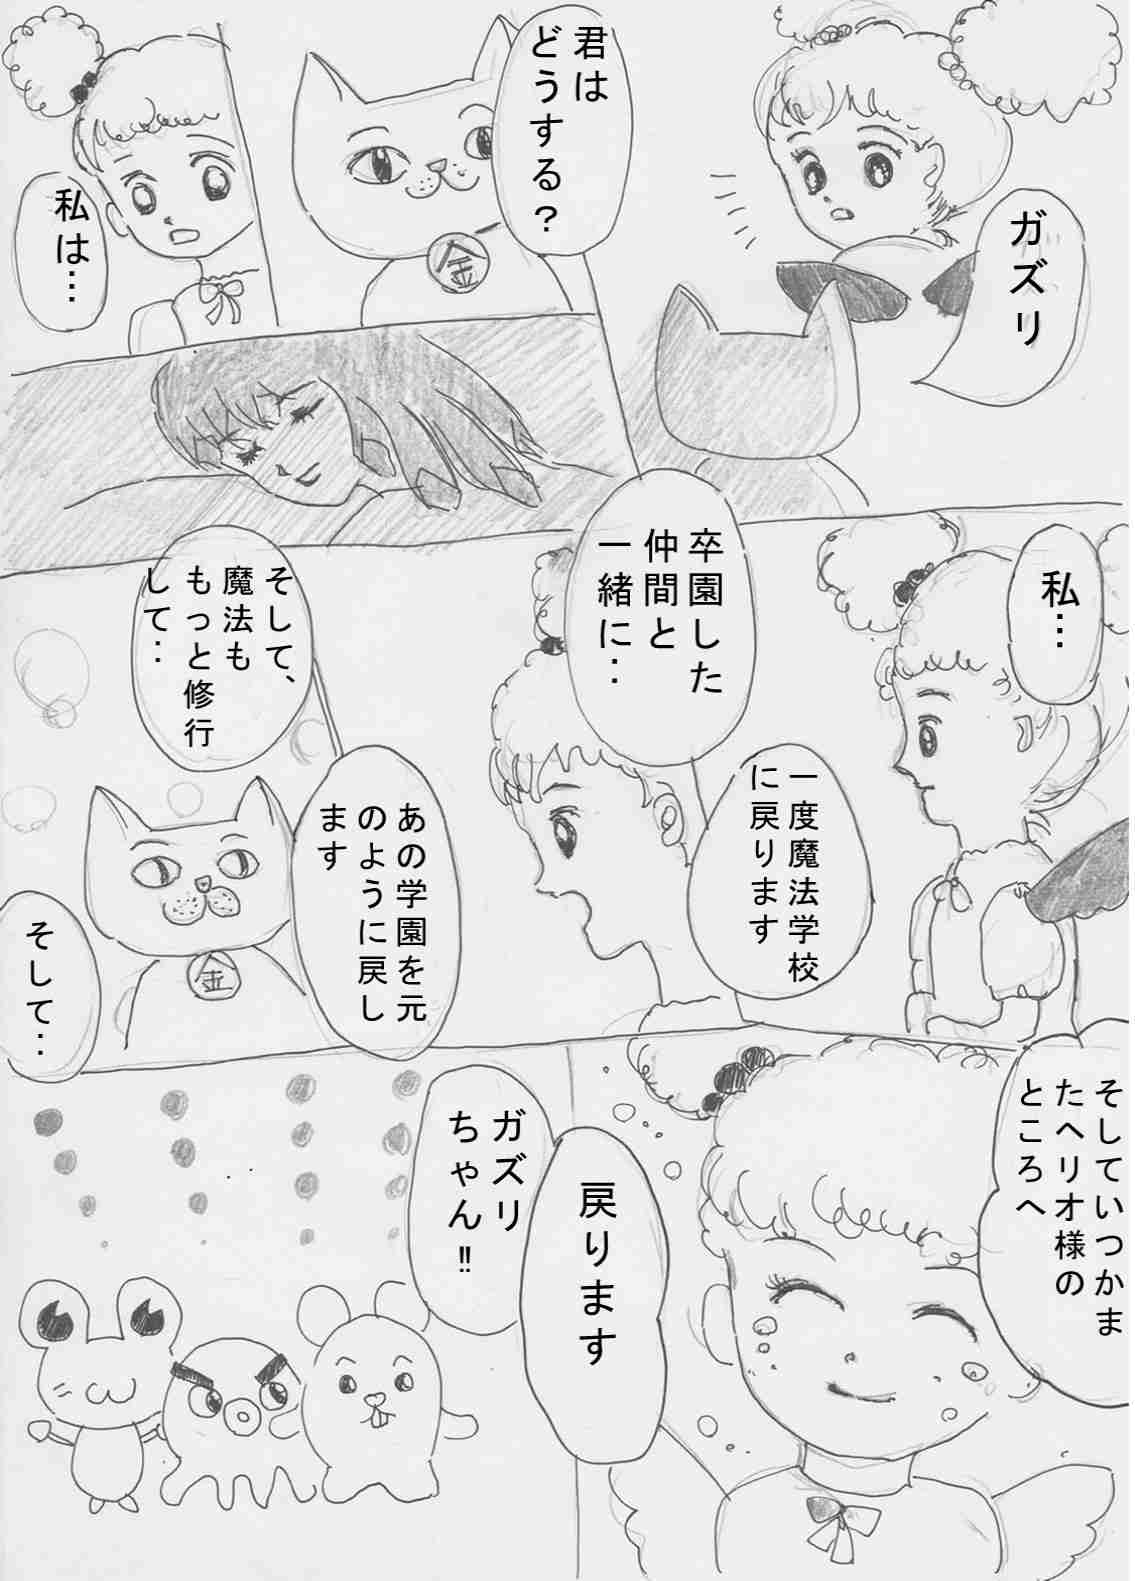 ガズリ
君は
どうする?
金
私は…
私…
一度魔法学校
に戻ります
卒園した
仲間と
一緒に‥
そして、
魔法も
もっと修行
して‥
あの学園を元
のように戻し
ます
金
そして‥
そしていつかま
たヘリオ様の
ところへ
戻ります
ガズリ
ちゃん!!